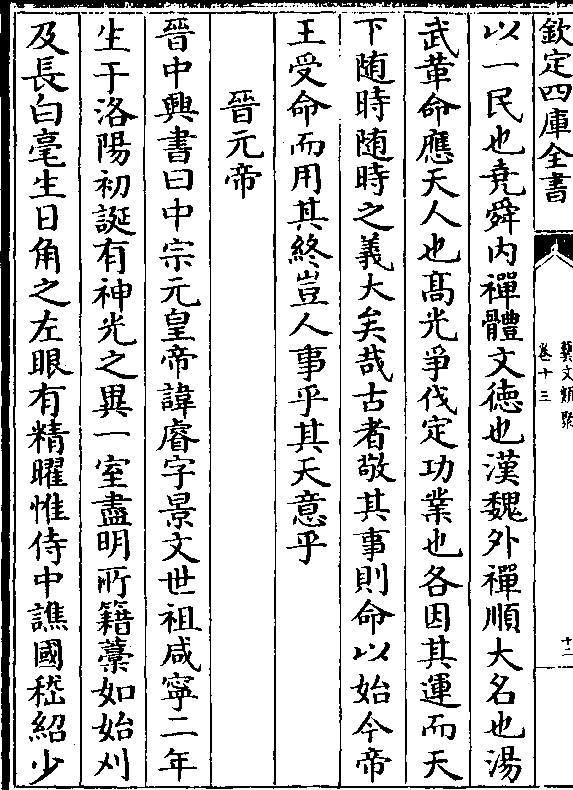 欽定四庫全書
藝文類聚
卷十三
十二
以一民也堯舜内禪體文德也漢魏外禪順大名也湯
武革命應天人也髙光爭伐定功業也各因其運而天
下随時随時之義大矣哉古者敬其事則命以始今帝
王受命而用其終豈人事乎其天意乎
晉元帝
晉中興書曰中宗元皇帝諱睿字景文世祖咸寧二年
生于洛陽初誕有神光之異一室盡明所籍藁如始刈
及長白毫生日角之左眼有精曜惟侍中譙國嵇紹少